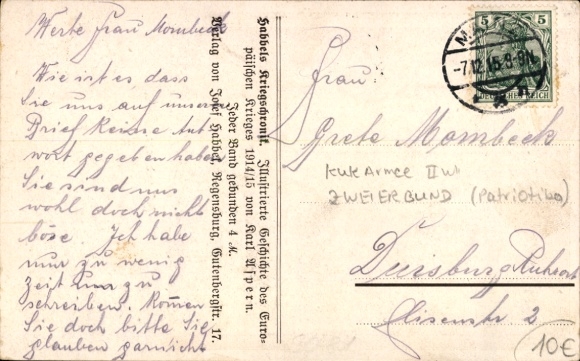 Werte Frau Mombeck
Wie ist es dass
Sie uns auf unsern
Brief keine Ant
wort gegeben haben
Sie sind uns
wohl doch nicht
böse. Ich habe
nur zu wenig
Zeit um zu
schreiben. Komen
Sie doch bitte Sie
glauben garnicht
Habbels Kriegschronik. Illustrierte Geschichte des Euro-
päischen Krieges 1914/15 von Karl Aspern.
Jeder Band gebunden 4 M.
Verlag von Josef Habbel, Regensburg, Gutenbergstr. 17.
5 5
DEUTSCHES REICH
-7.12.15.8-9N.
Frau:
Grete Mombeck
KuK Armee I Wk
ZWEIERBUND (Patriotika)
Duisburg Ruhrort
Elisenstr 2
10€